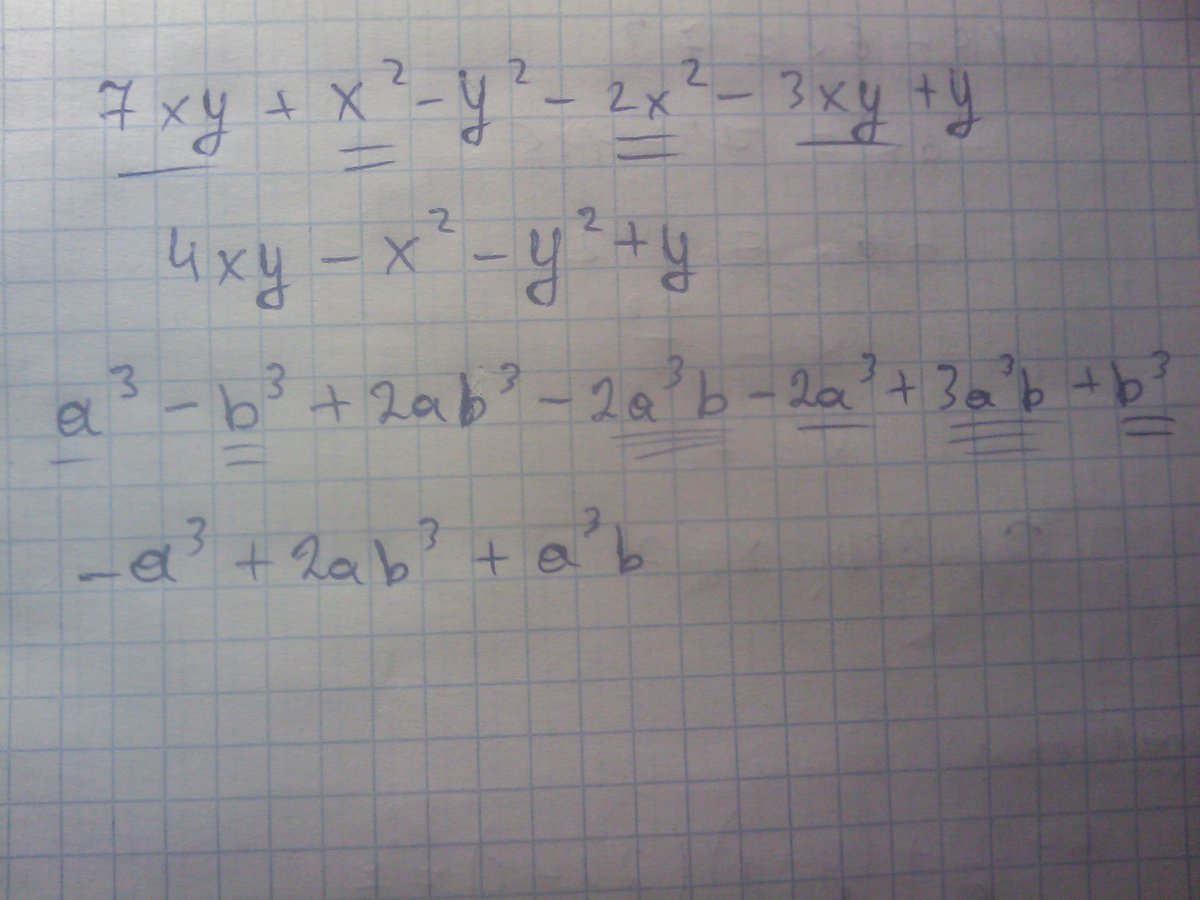 7xy + x² - y² - 2x² - 3xy + y
4xy - x² - y² + y
a³ - b³ + 2ab³ - 2a³b - 2a³ + 3a³b + b³
-a³ + 2ab³ + a³b